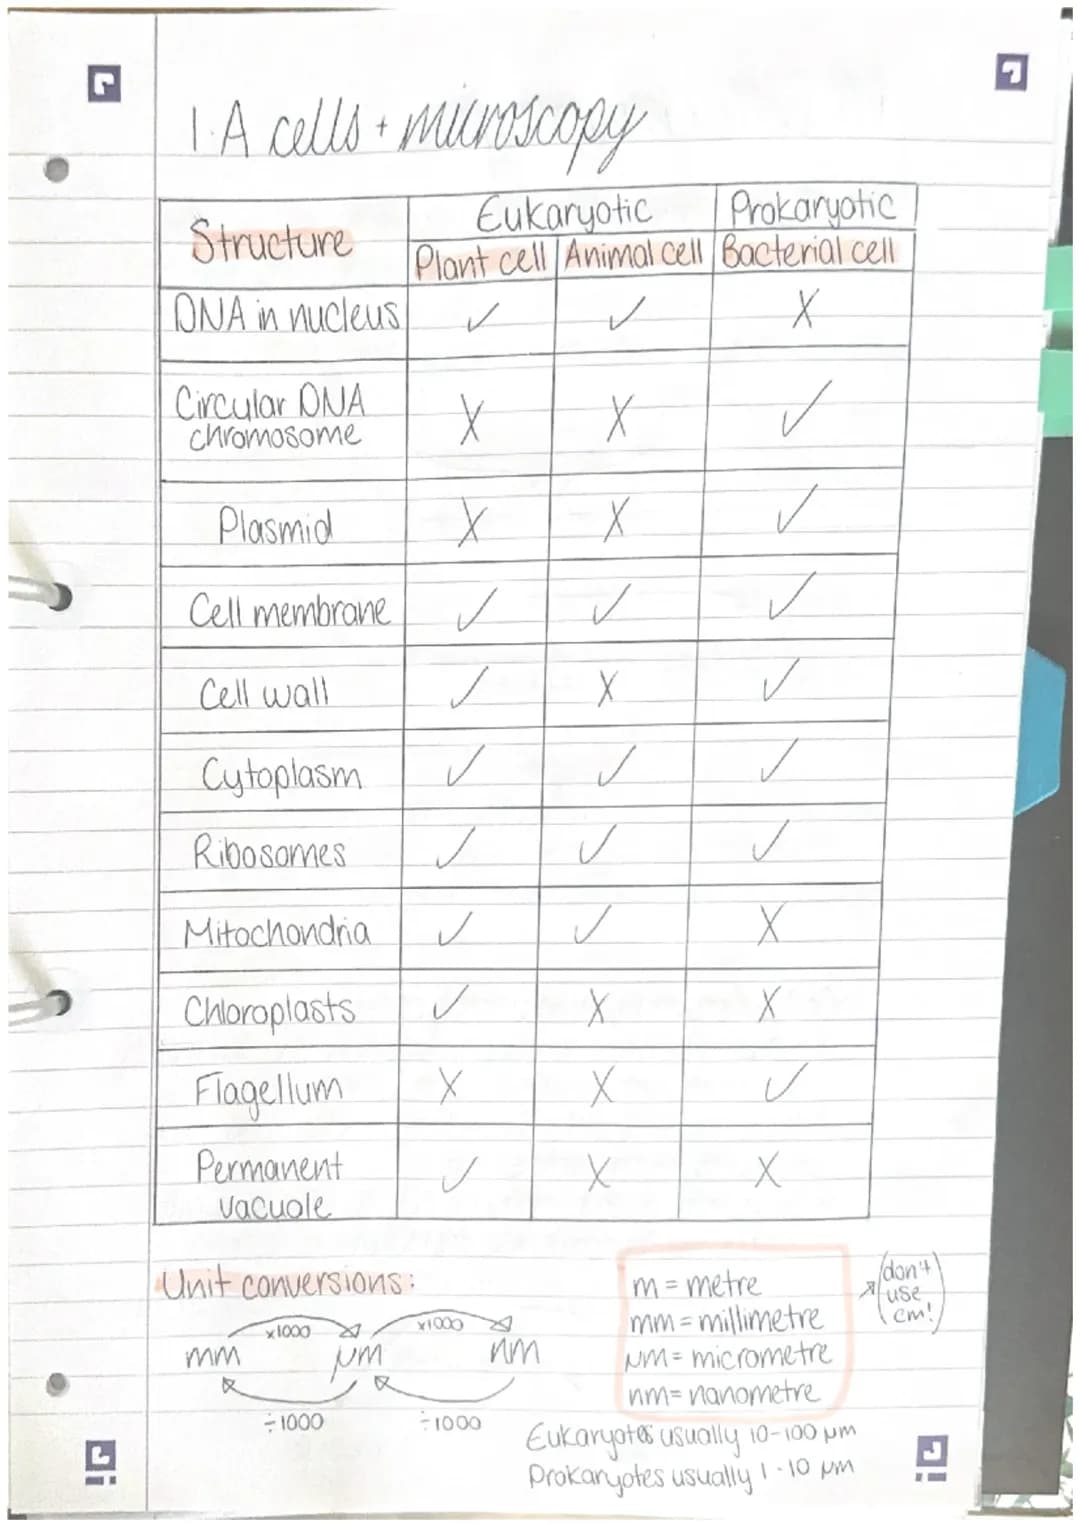 1.A cells + microscopy
Structure
Eukaryotic
Prokaryotic
Plant cell
Animal cell
Bacterial cell
DNA in nucleus ✓ ✓ X
Circular DNA
chromosome X X ✓
Plasmid X X ✓
Cell membrane ✓ ✓ ✓
Cell wall ✓ X ✓
Cytoplasm ✓ ✓ ✓
Ribosomes ✓ ✓ ✓
Mitochondria ✓ ✓ X
Chloroplasts ✓ X X
Flagellum X X ✓
Permanent
vacuole ✓ X X
Unit conversions:
x1000 x1000
mm μm nm
÷1000 ÷1000
m = metre
mm = millimetre
μm = micrometre
nm = nanometre
(don't
use
cm!)
Eukaryotes usually 10-100 μm
Prokaryotes usually 1-10 μm